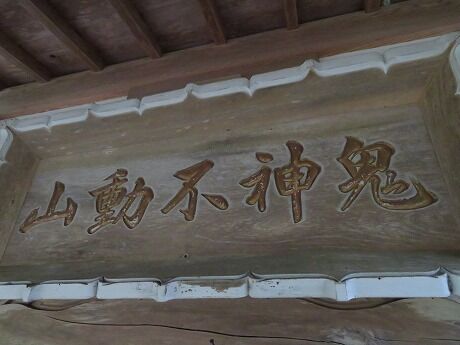 鬼神不動山